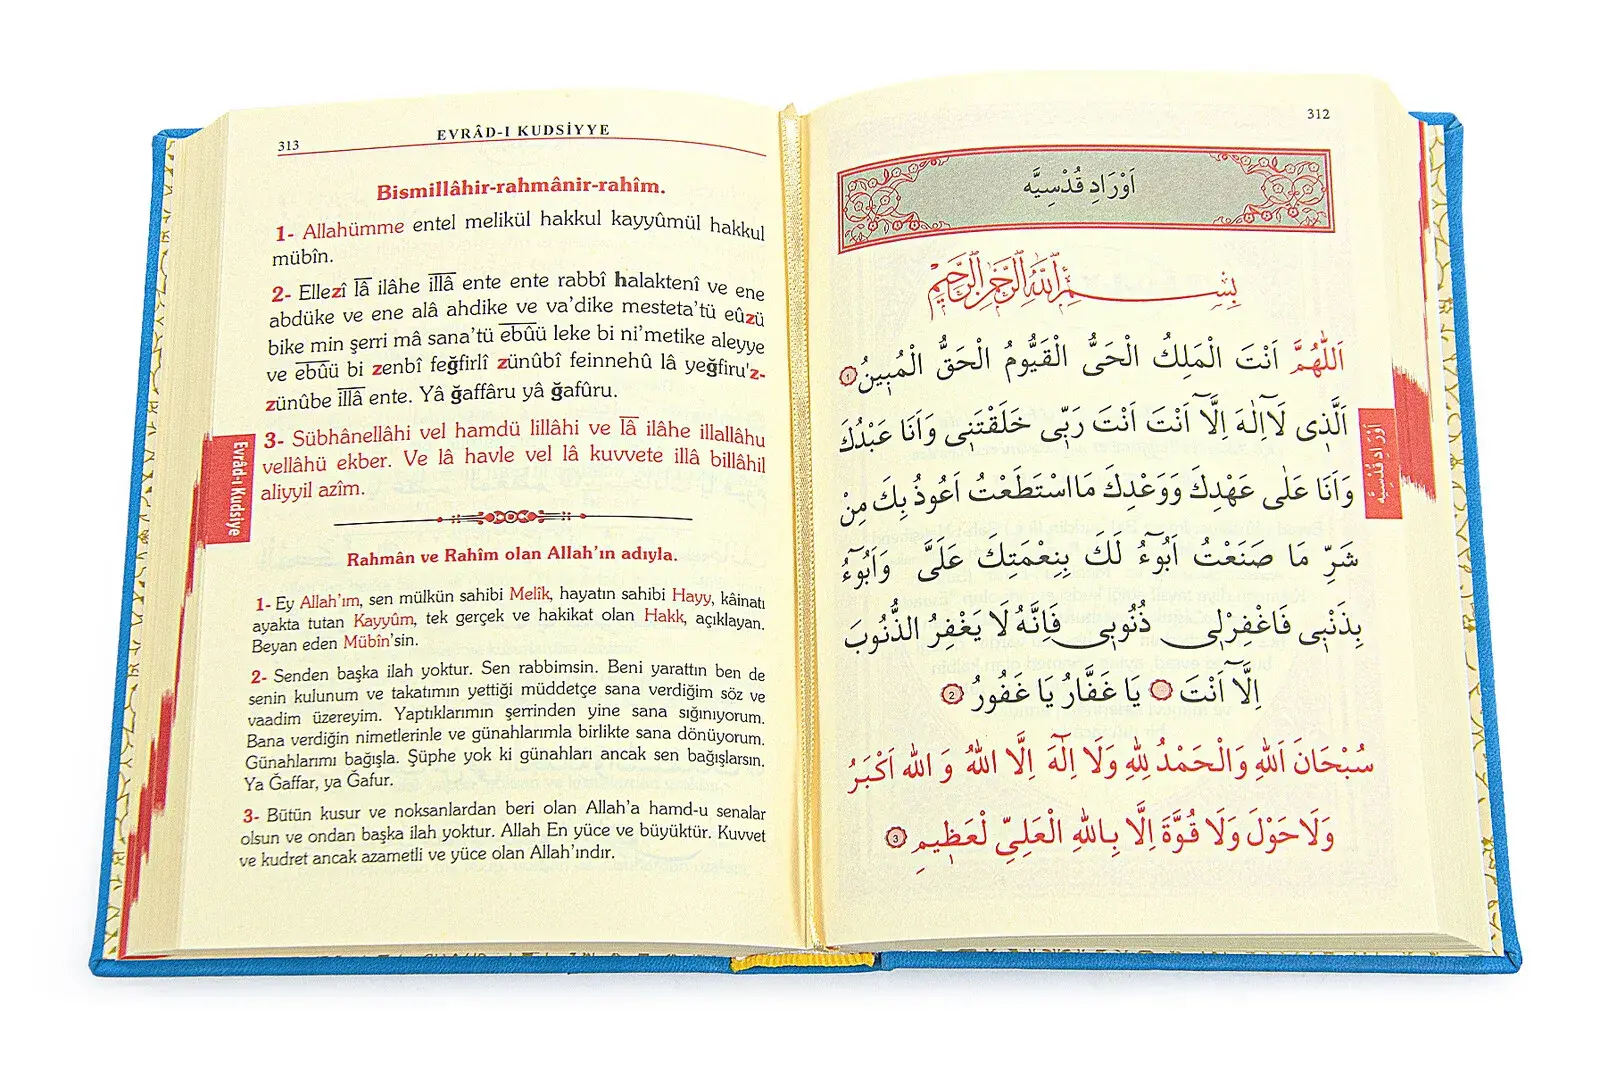 312
اَوْرَادِ قُدْسِيَّه
بِسْمِ اللّٰهِ الرَّحْمٰنِ الرَّحِيمِ
اَللّٰهُمَّ اَنْتَ الْمَلِكُ الْحَىُّ الْقَيُّومُ الْحَقُّ الْمُبٖينُ ١
اَلَّذٖى لَٓا اِلٰهَ اِلَّٓا اَنْتَ اَنْتَ رَبّٖى خَلَقْتَنٖى وَاَنَا عَبْدُكَ
وَاَنَا عَلٰى عَهْدِكَ وَوَعْدِكَ مَا اسْتَطَعْتُ اَعُوذُ بِكَ مِنْ
شَرِّ مَا صَنَعْتُ اَبُٓوءُ لَكَ بِنِعْمَتِكَ عَلَىَّ وَاَبُٓوءُ
بِذَنْبٖى فَاغْفِرْلٖى ذُنُوبٖى فَاِنَّهُ لَا يَغْفِرُ الذُّنُوبَ
اِلَّٓا اَنْتَ يَا غَفَّارُ يَا غَفُورُ 2
سُبْحَانَ اَللّٰهِ وَالْحَمْدُ لِلّٰهِ وَلَا اِلٰٓهَ اِلَّا اللّٰهُ وَ اللّٰه اَكْبَرُ
وَلَا حَوْلَ وَلَا قُوَّةَ اِلَّا بِاللّٰهِ الْعَلِىِّ لْعَظٖيمِ 3
اَوْرَادِ قُدْسِيَّه
313
EVRÂD-I KUDSİYYE
Bismillâhir-rahmânir-rahîm.
1- Allahümme entel melikül hakkul kayyûmül hakkul
mübîn.
2- Ellezî lâ ilâhe illâ ente ente rabbî halaktenî ve ene
abdüke ve ene alâ ahdike ve va'dike mesteta'tü eûzü
bike min şerri mâ sana'tü ebûü leke bi ni'metike aleyye
ve ebûü bi zenbî feğfirlî zünûbî feinnehû lâ yeğfiru'z-
zünûbe illâ ente. Yâ ğaffâru yâ ğafûru.
3- Sübhânellâhi vel hamdü lillâhi ve lâ ilâhe illallâhu
vellâhü ekber. Ve lâ havle vel lâ kuvvete illâ billâhil
aliyyil azîm.
Rahmân ve Rahîm olan Allah'ın adıyla.
1- Ey Allah'ım, sen mülkün sahibi Melîk, hayatın sahibi Hayy, kâinatı
ayakta tutan Kayyûm, tek gerçek ve hakikat olan Hakk, açıklayan.
Beyan eden Mübîn'sin.
2- Senden başka ilah yoktur. Sen rabbimsin. Beni yarattın ben de
senin kulunum ve takatımın yettiği müddetçe sana verdiğim söz ve
vaadim üzereyim. Yaptıklarımın şerrinden yine sana sığınıyorum.
Bana verdiğin nimetlerinle ve günahlarımla birlikte sana dönüyorum.
Günahlarımı bağışla. Şüphe yok ki günahları ancak sen bağışlarsın.
Ya Ğaffar, ya Ğafur.
3- Bütün kusur ve noksanlardan beri olan Allah'a hamd-u senalar
olsun ve ondan başka ilah yoktur. Allah En yüce ve büyüktür. Kuvvet
ve kudret ancak azametli ve yüce olan Allah'ındır.
Evrâd-ı Kudsiye